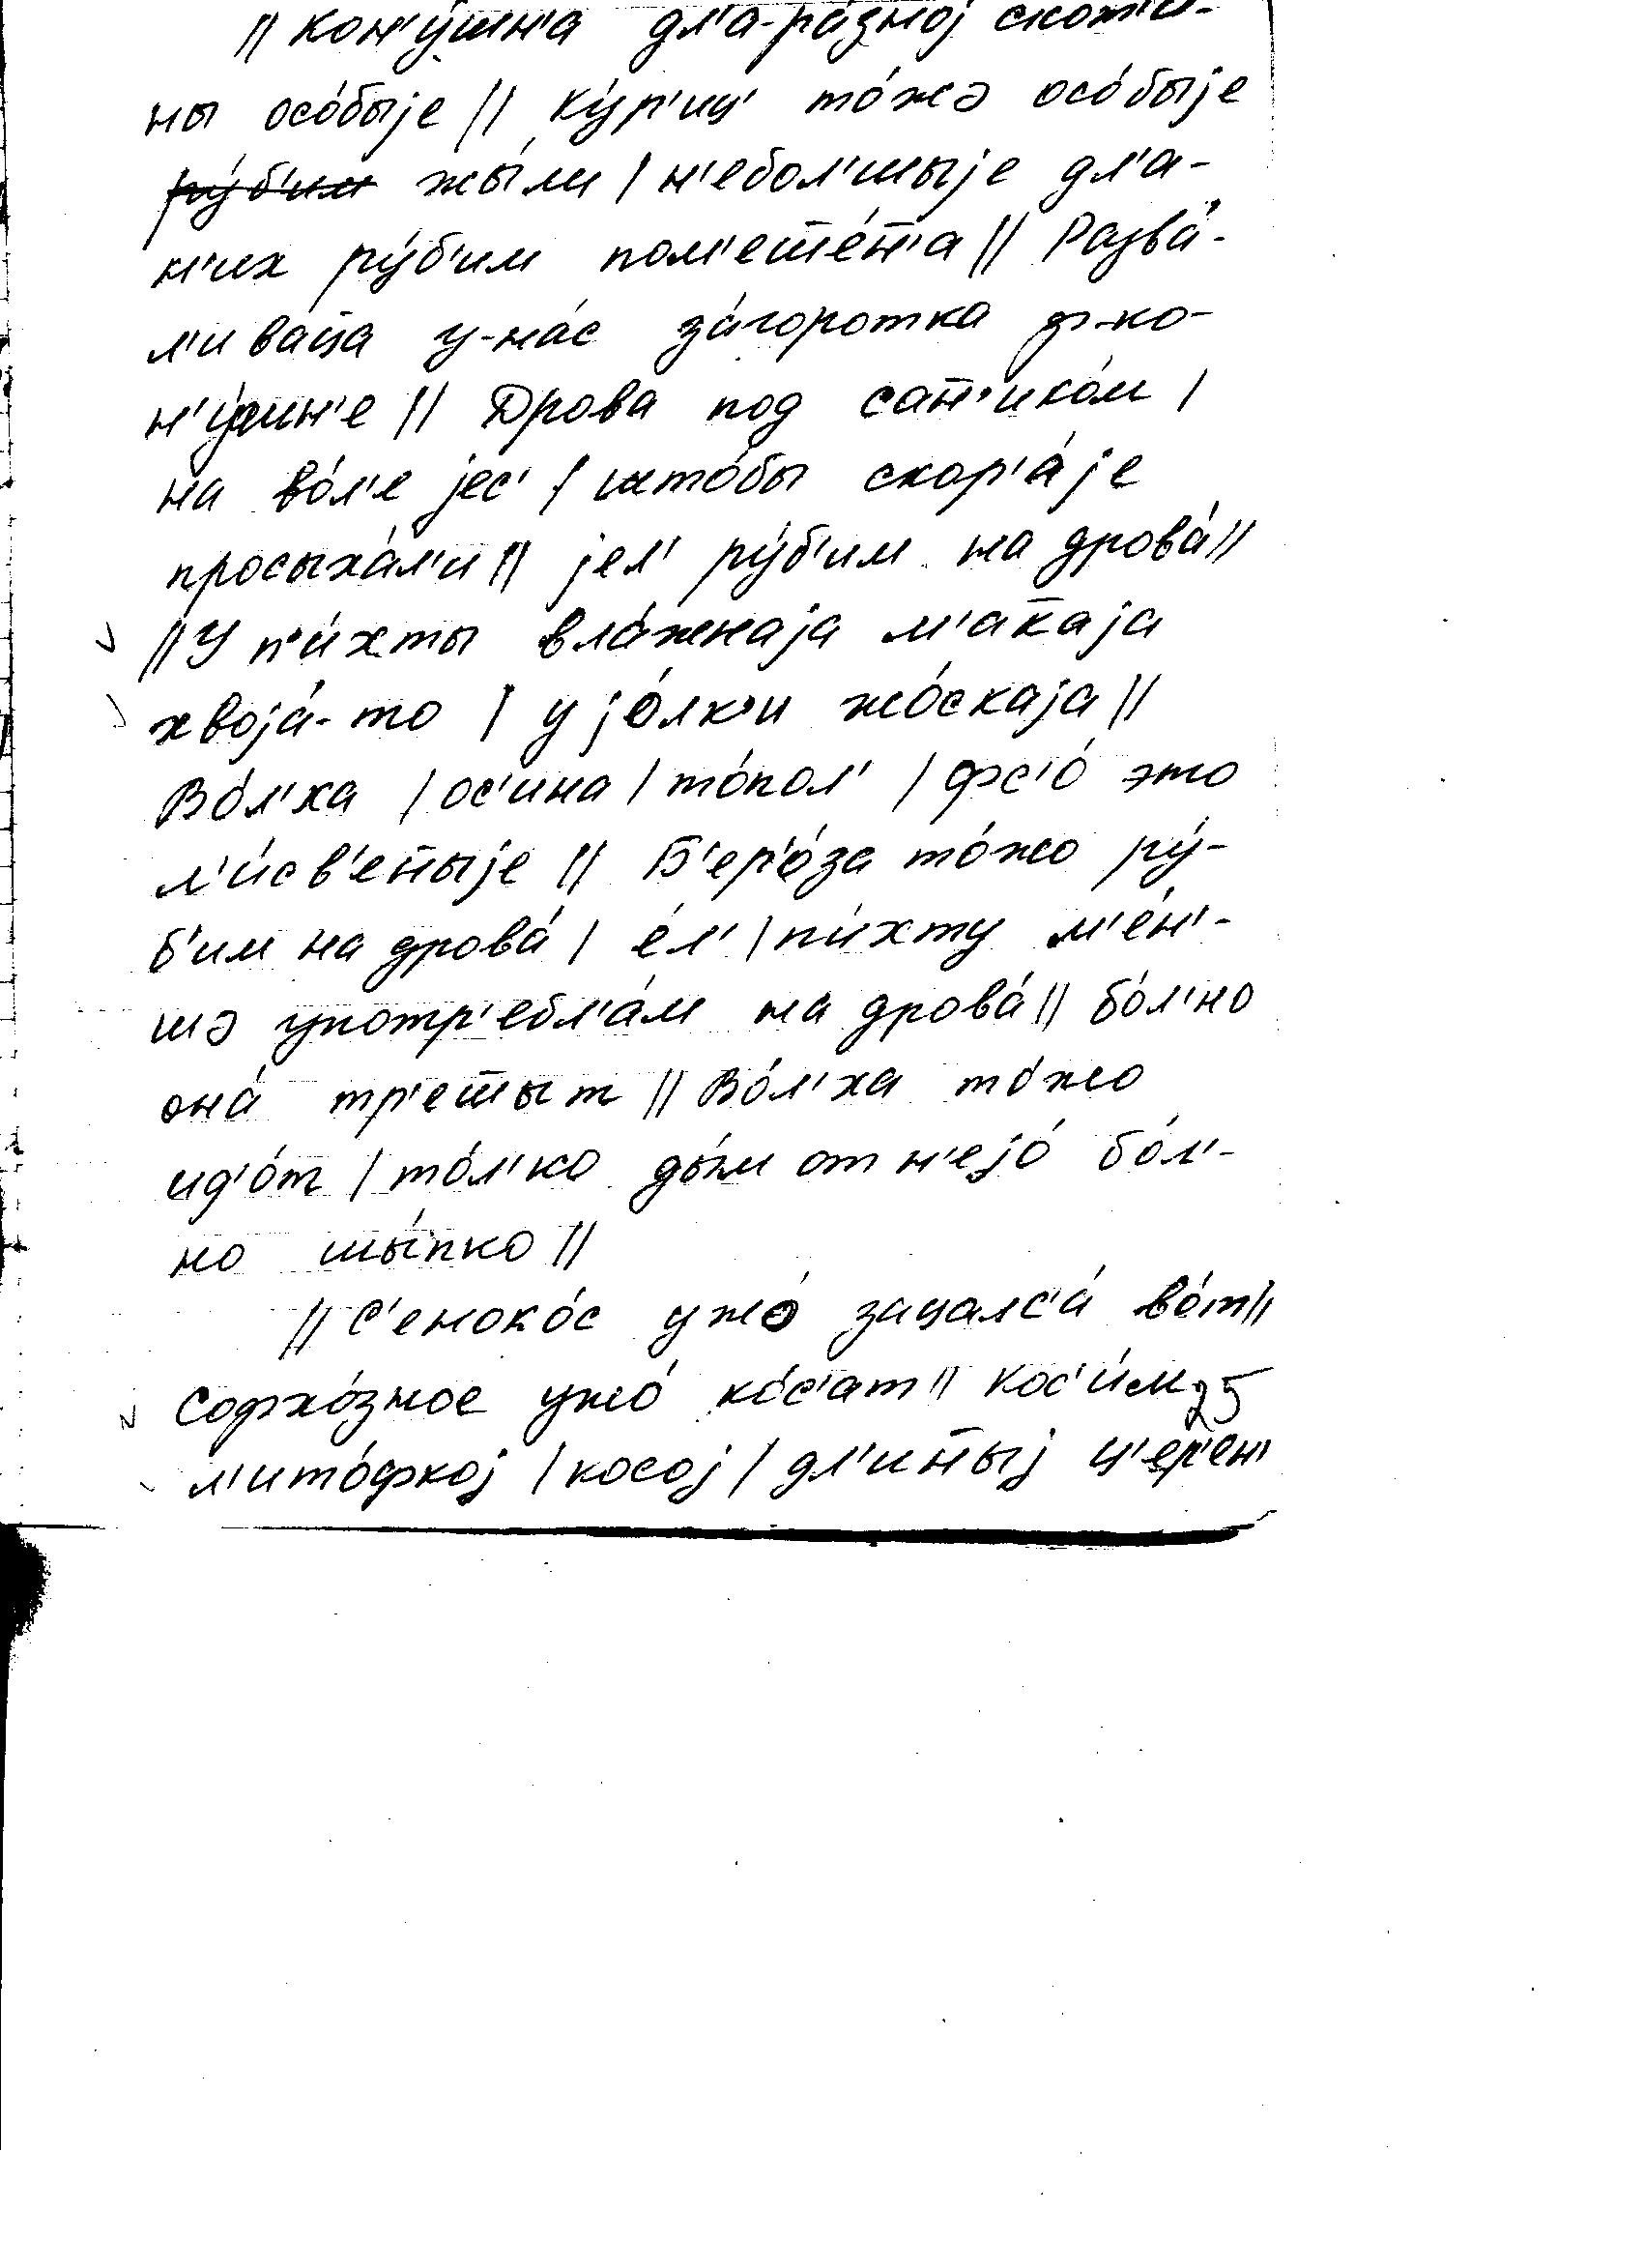 || Кон'у́шн'а дл'а-ра́зној скот'и́-
ны осо́быје || Ку́р'иц' то́жә осо́быје
ру́б'им жы́ли | н'ебол'шыје дл'а-
н'их ру́б'им пом'еш̅е́н̅'а || Разва́-
л'иваца̅ у-на́с за́горотка ф-ко-
н'у́шн'е || Дрова под сап'ико́м |
на во́л'е јес' | што́бы скор'а́је
просыха́л'и || јел' ру́б'им на дрова́ ||
|| У п'и́хты вла́жнаја м'ак̅аја
хвоја́-то | у јо́лк'и жо́скаја ||
Во́л'ха | ос'ина | то́пол' | фс'о́ это
л'и́св'ен̅ыје || Б'ер'о́за то́жо ру́-
б'им на дрова́ | е́л' | пи́хту м'е́н'-
шә употр'ебл'а́м на дрова́ || бо́л'но
она́ тр'еш̅ыт || Во́л'ха то́жо
ид'о́т | то́л'ко ды́м от н'ејо́ бо́л'-
но шы́пко ||
|| С'еноко́с ужо́ зацалс'а́ во́т ||
Софхо́зное ужо́ ко́с'ат || Кос'и́м 25
л'ито́фкој | косој | дл'ин̅ыј ц'ер'ен'